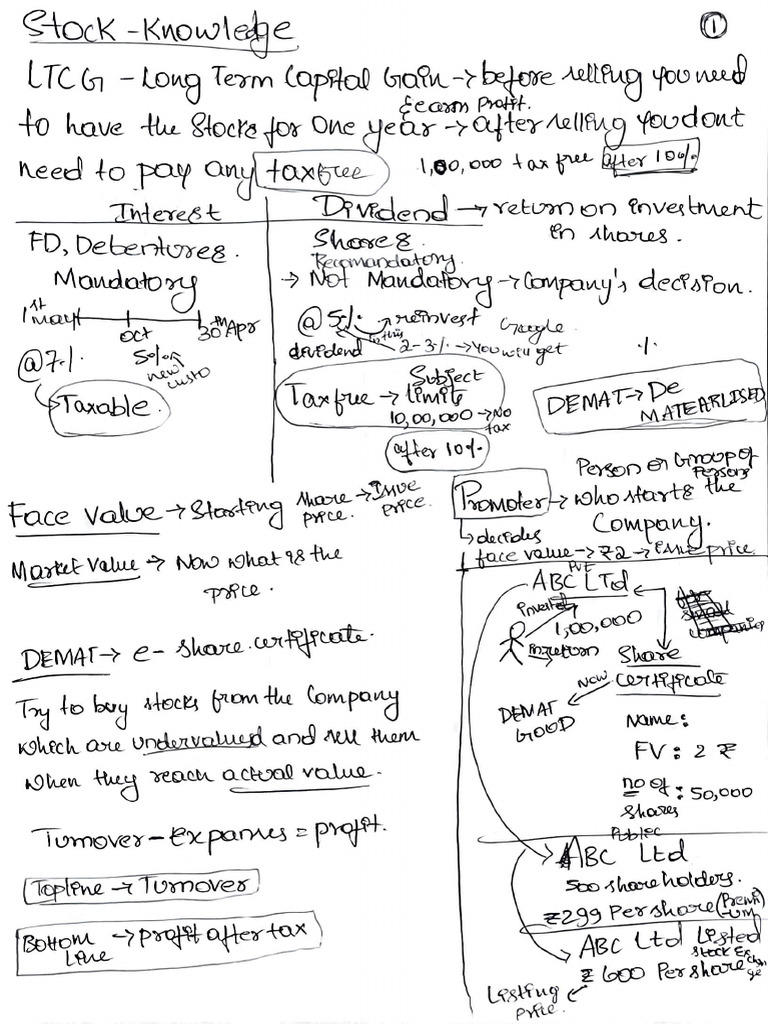 Stock - Knowledge
1
LTCG - Long Term Capital Gain → before selling you need
& earn Profit.
to have the Stocks for One year → after selling you dont
need to pay any tax free 1,00,000 tax free after 10%
Interest
FD, Debentures.
Mandatory
1st May Oct 30th Apr
@7% 5% new custo
Taxable.
Dividend → return on investment
in shares.
Shares
Recomandatory.
→ Not Mandatory → Company's decision.
@ 5% → reinvest Google
in this
dividend 2-3% → You will get %
Tax free → Subject limits
10,00,000 → No tax
after 10%
DEMAT → De
MATEARLISED
Face Value → Starting share price. → Issue price.
Market Value → Now what is the
price.
DEMAT → e- share certificate.
Try to buy stocks from the Company
which are undervalued and sell them
when they reach actual value.
Turnover - Expanses = profit.
Topline → Turnover
Bottom Line → profit after tax
Promoter → Person or Group of Persons
who starts the
Company.
→ decides
face value → ₹2 → issue price
ABC Pvt Ltd
invested
1,00,000
in return Share
certificate
Now
DEMAT
GOOD
Name:
FV: 2 ₹
no of shares : 50,000
Public
ABC Ltd
500 shareholders.
₹299 Per share (Premi-um)
ABC Ltd Listed
Stock Exchange
₹ 600 Per share
Listing
price.